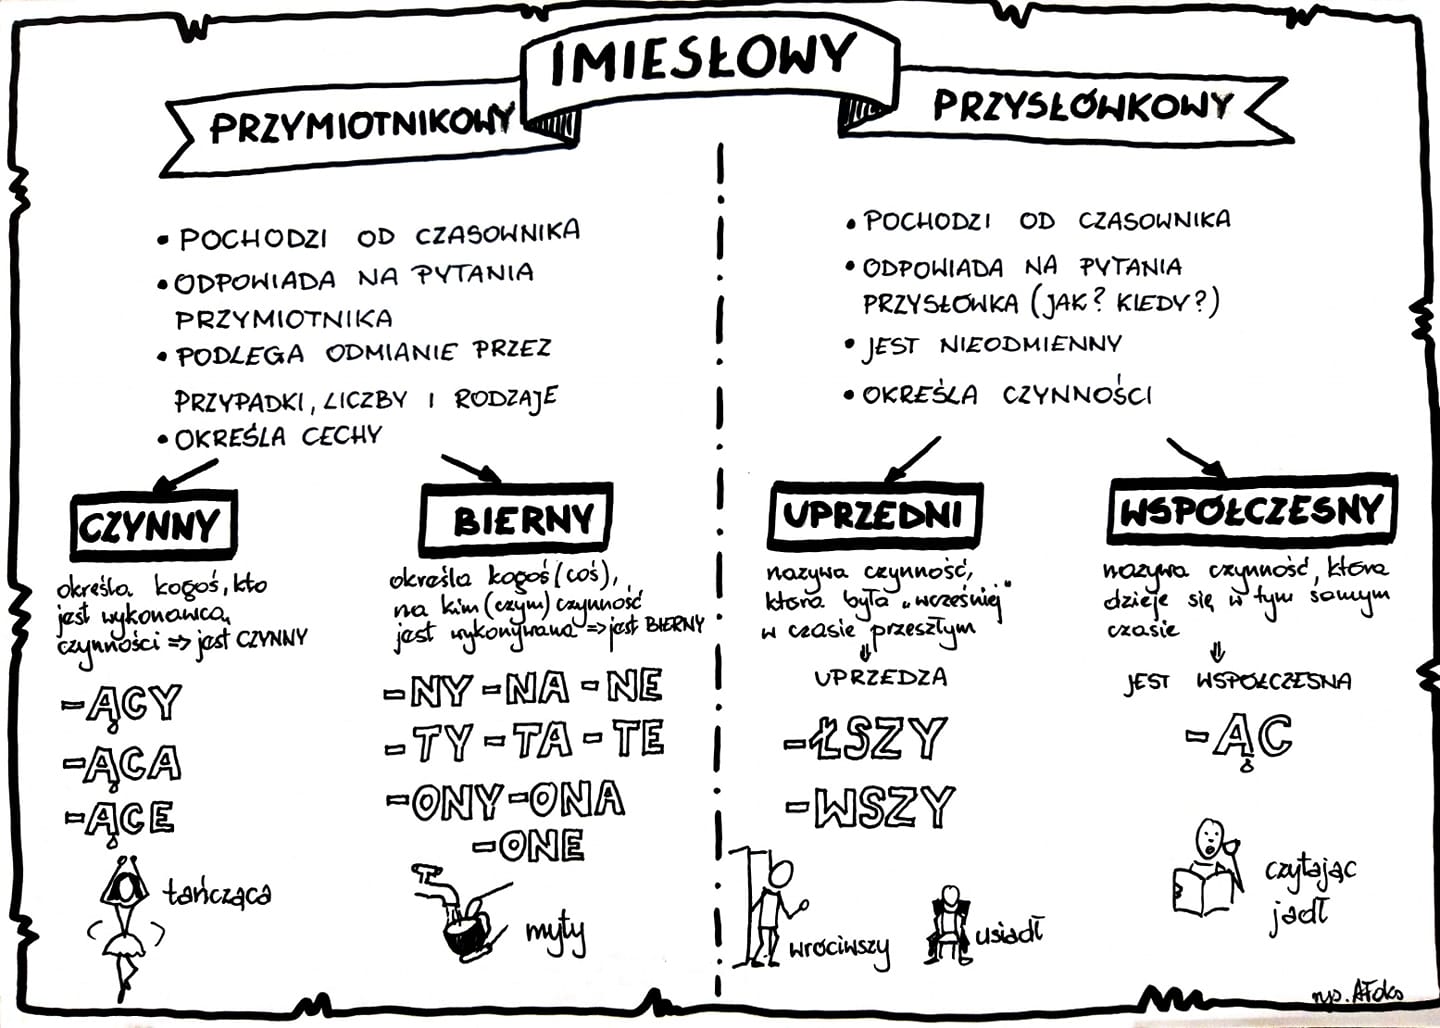 IMIESŁOWY
PRZYMIOTNIKOWY
• POCHODZI OD CZASOWNIKA
• ODPOWIADA NA PYTANIA
PRZYMIOTNIKA
• PODLEGA ODMIANIE PRZEZ
PRZYPADKI, LICZBY I RODZAJE
• OKREŚLA CECHY
CZYNNY
określa kogoś, kto
jest wykonawcą
czynności => jest CZYNNY
-ĄCY
-ĄCA
-ĄCE
tańcząca
BIERNY
określa kogoś (coś),
na kim (czym) czynność
jest wykonywana => jest BIERNY
-NY -NA -NE
-TY -TA -TE
-ONY -ONA
-ONE
myty
PRZYSŁÓWKOWY
• POCHODZI OD CZASOWNIKA
• ODPOWIADA NA PYTANIA
PRZYSŁÓWKA (JAK? KIEDY?)
• JEST NIEODMIENNY
• OKREŚLA CZYNNOŚCI
UPRZEDNI
nazywa czynność,
która była „wcześniej"
w czasie przeszłym
⇓
UPRZEDZA
-ŁSZY
-WSZY
wróciwszy usiadł
WSPÓŁCZESNY
nazywa czynność, która
dzieje się w tym samym
czasie
⇓
JEST WSPÓŁCZESNA
-ĄC
czytając
jadł
rys. AFoks